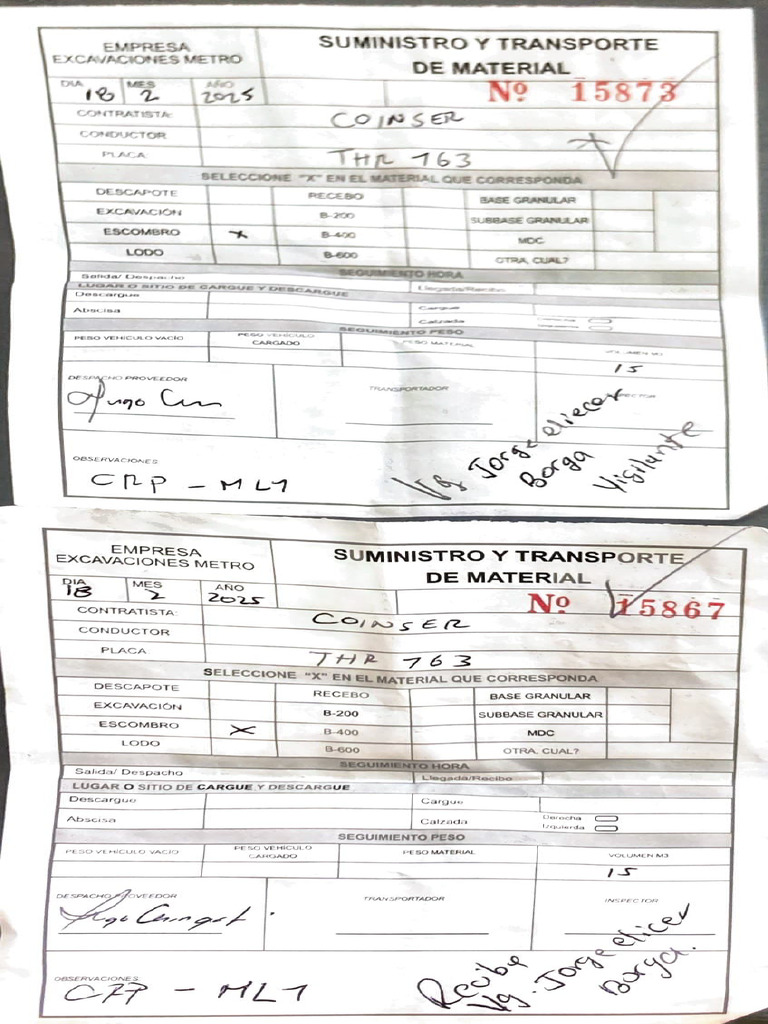 EMPRESA
EXCAVACIONES METRO
SUMINISTRO Y TRANSPORTE
DE MATERIAL
DIA 18 MES 2 AÑO 2025
Nº 15873
CONTRATISTA: COINSER
CONDUCTOR
PLACA: THR 763
SELECCIONE "X" EN EL MATERIAL QUE CORRESPONDA
DESCAPOTE RECEBO BASE GRANULAR
EXCAVACIÓN B-200 SUBBASE GRANULAR
ESCOMBRO X B-400 MDC
LODO B-600 OTRA, CUAL?
SEGUIMIENTO HORA
Salida/ Despacho Llegada/Recibo
LUGAR O SITIO DE CARGUE Y DESCARGUE
Descargue Cargue
Abscisa Calzada
SEGUIMIENTO PESO
PESO VEHICULO VACIO PESO VEHICULO CARGADO PESO MATERIAL VOLUMEN M3
15
DESPACHO PROVEEDOR TRANSPORTADOR INSPECTOR
Hugo
Vg Jorge eliecer
Borga
Vigilante
OBSERVACIONES
CRP - ML1
EMPRESA
EXCAVACIONES METRO
SUMINISTRO Y TRANSPORTE
DE MATERIAL
DIA 18 MES 2 AÑO 2025
Nº 15867
CONTRATISTA: COINSER
CONDUCTOR
PLACA: THR 763
SELECCIONE "X" EN EL MATERIAL QUE CORRESPONDA
DESCAPOTE RECEBO BASE GRANULAR
EXCAVACIÓN B-200 SUBBASE GRANULAR
ESCOMBRO X B-400 MDC
LODO B-600 OTRA, CUAL?
SEGUIMIENTO HORA
Salida/ Despacho Llegada/Recibo
LUGAR O SITIO DE CARGUE Y DESCARGUE
Descargue Cargue
Abscisa Calzada Derecha
Izquierda
SEGUIMIENTO PESO
PESO VEHICULO VACIO PESO VEHICULO CARGADO PESO MATERIAL VOLUMEN M3
15
DESPACHO PROVEEDOR TRANSPORTADOR INSPECTOR
Recibe
Vg. Jorge elicer
Borga.
OBSERVACIONES
- ML1